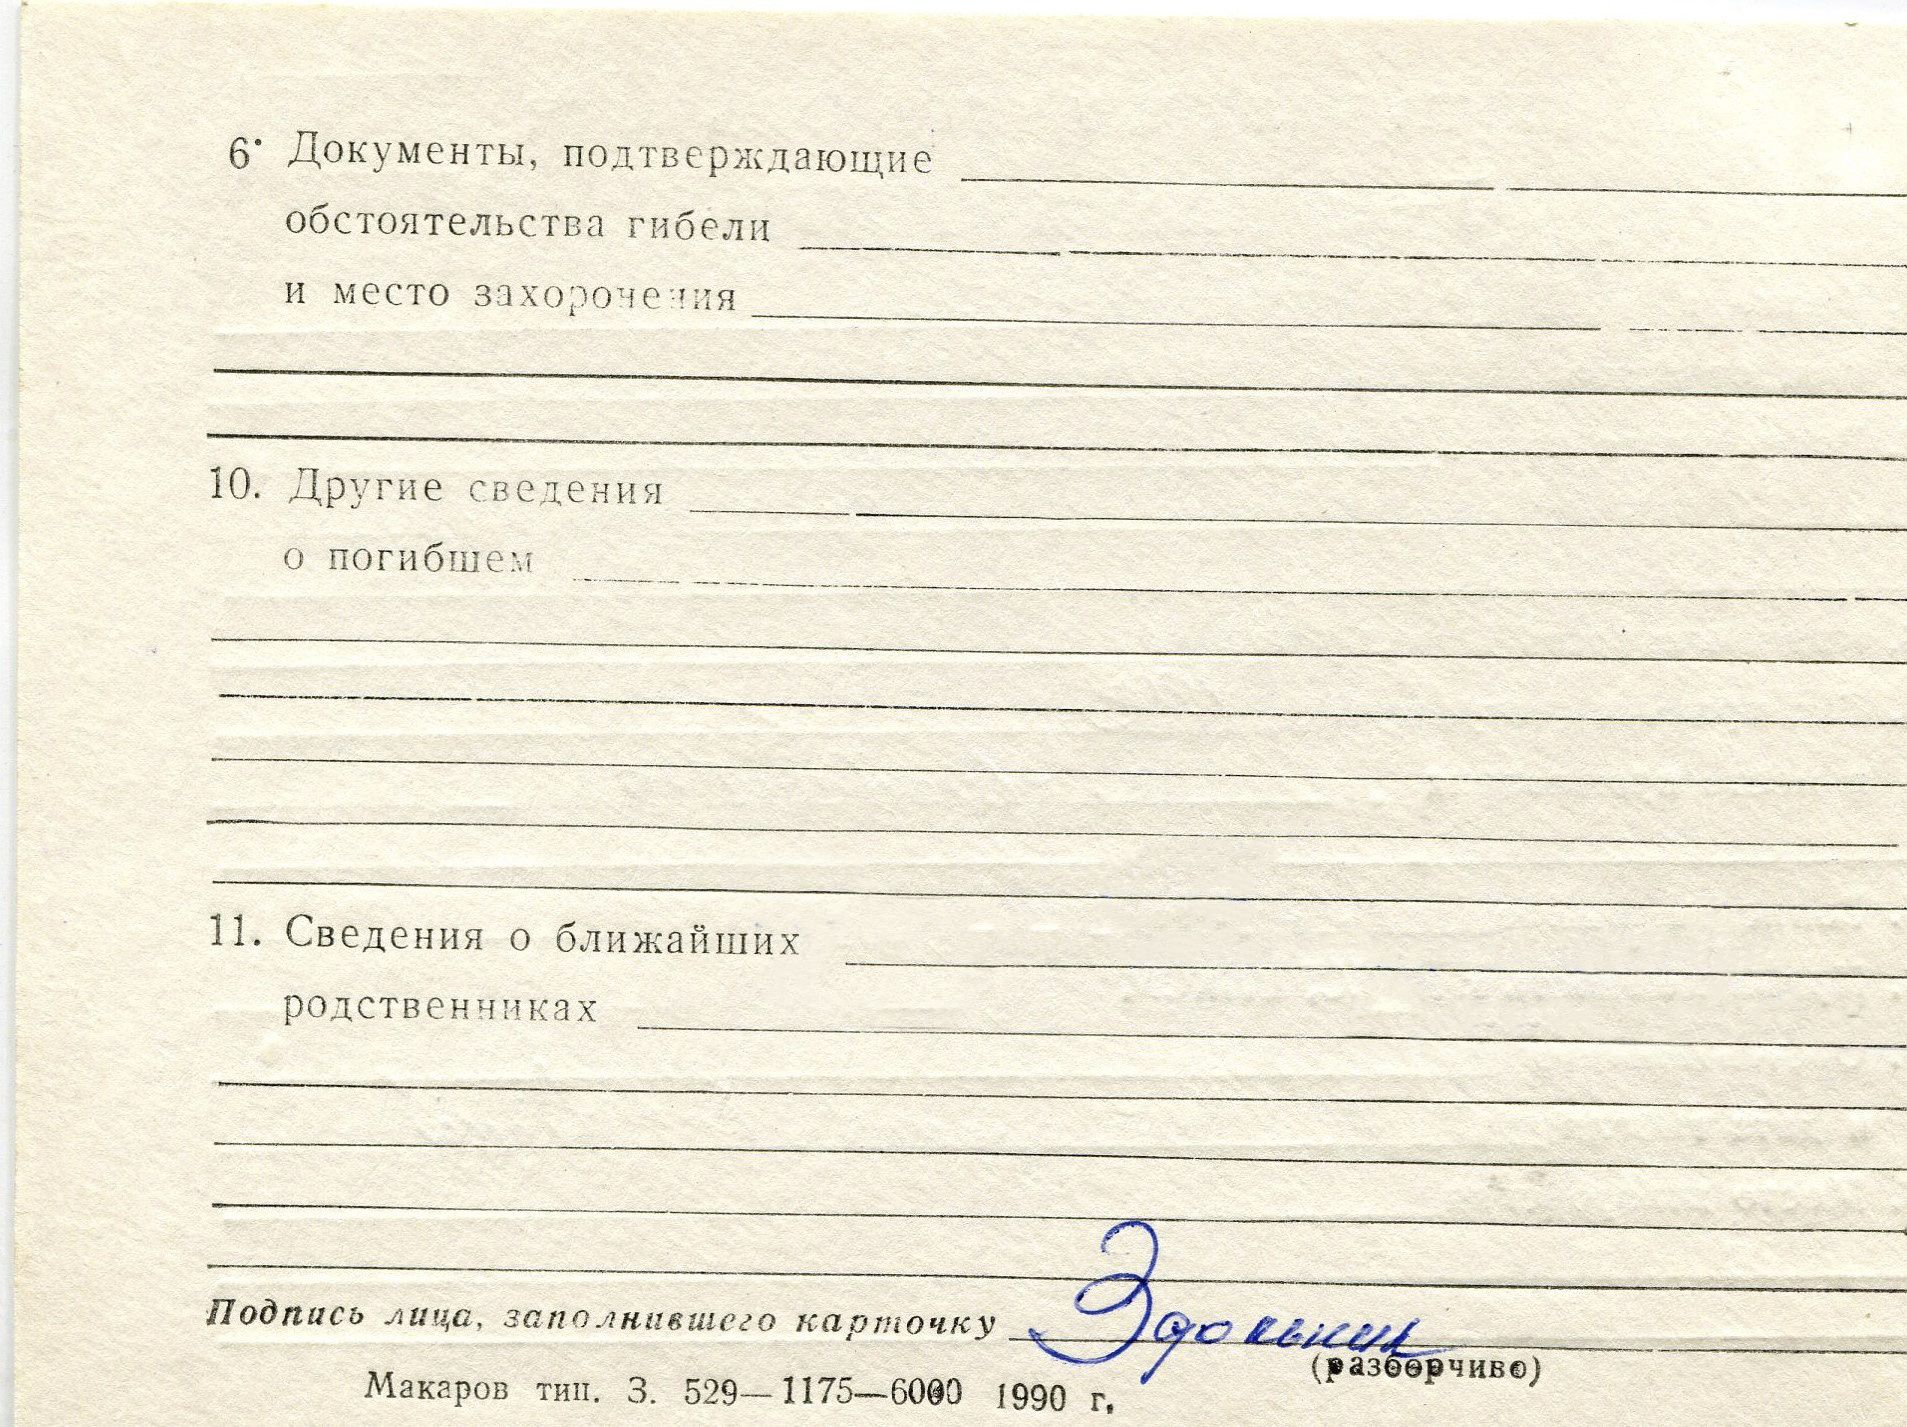 6. Документы, подтверждающие
обстоятельства гибели
и место захоронения
10. Другие сведения
о погибшем
11. Сведения о ближайших
родственниках
Подпись лица, заполнившего карточку
(разборчиво)
Макаров тип. З. 529—1175—6000 1990 г.